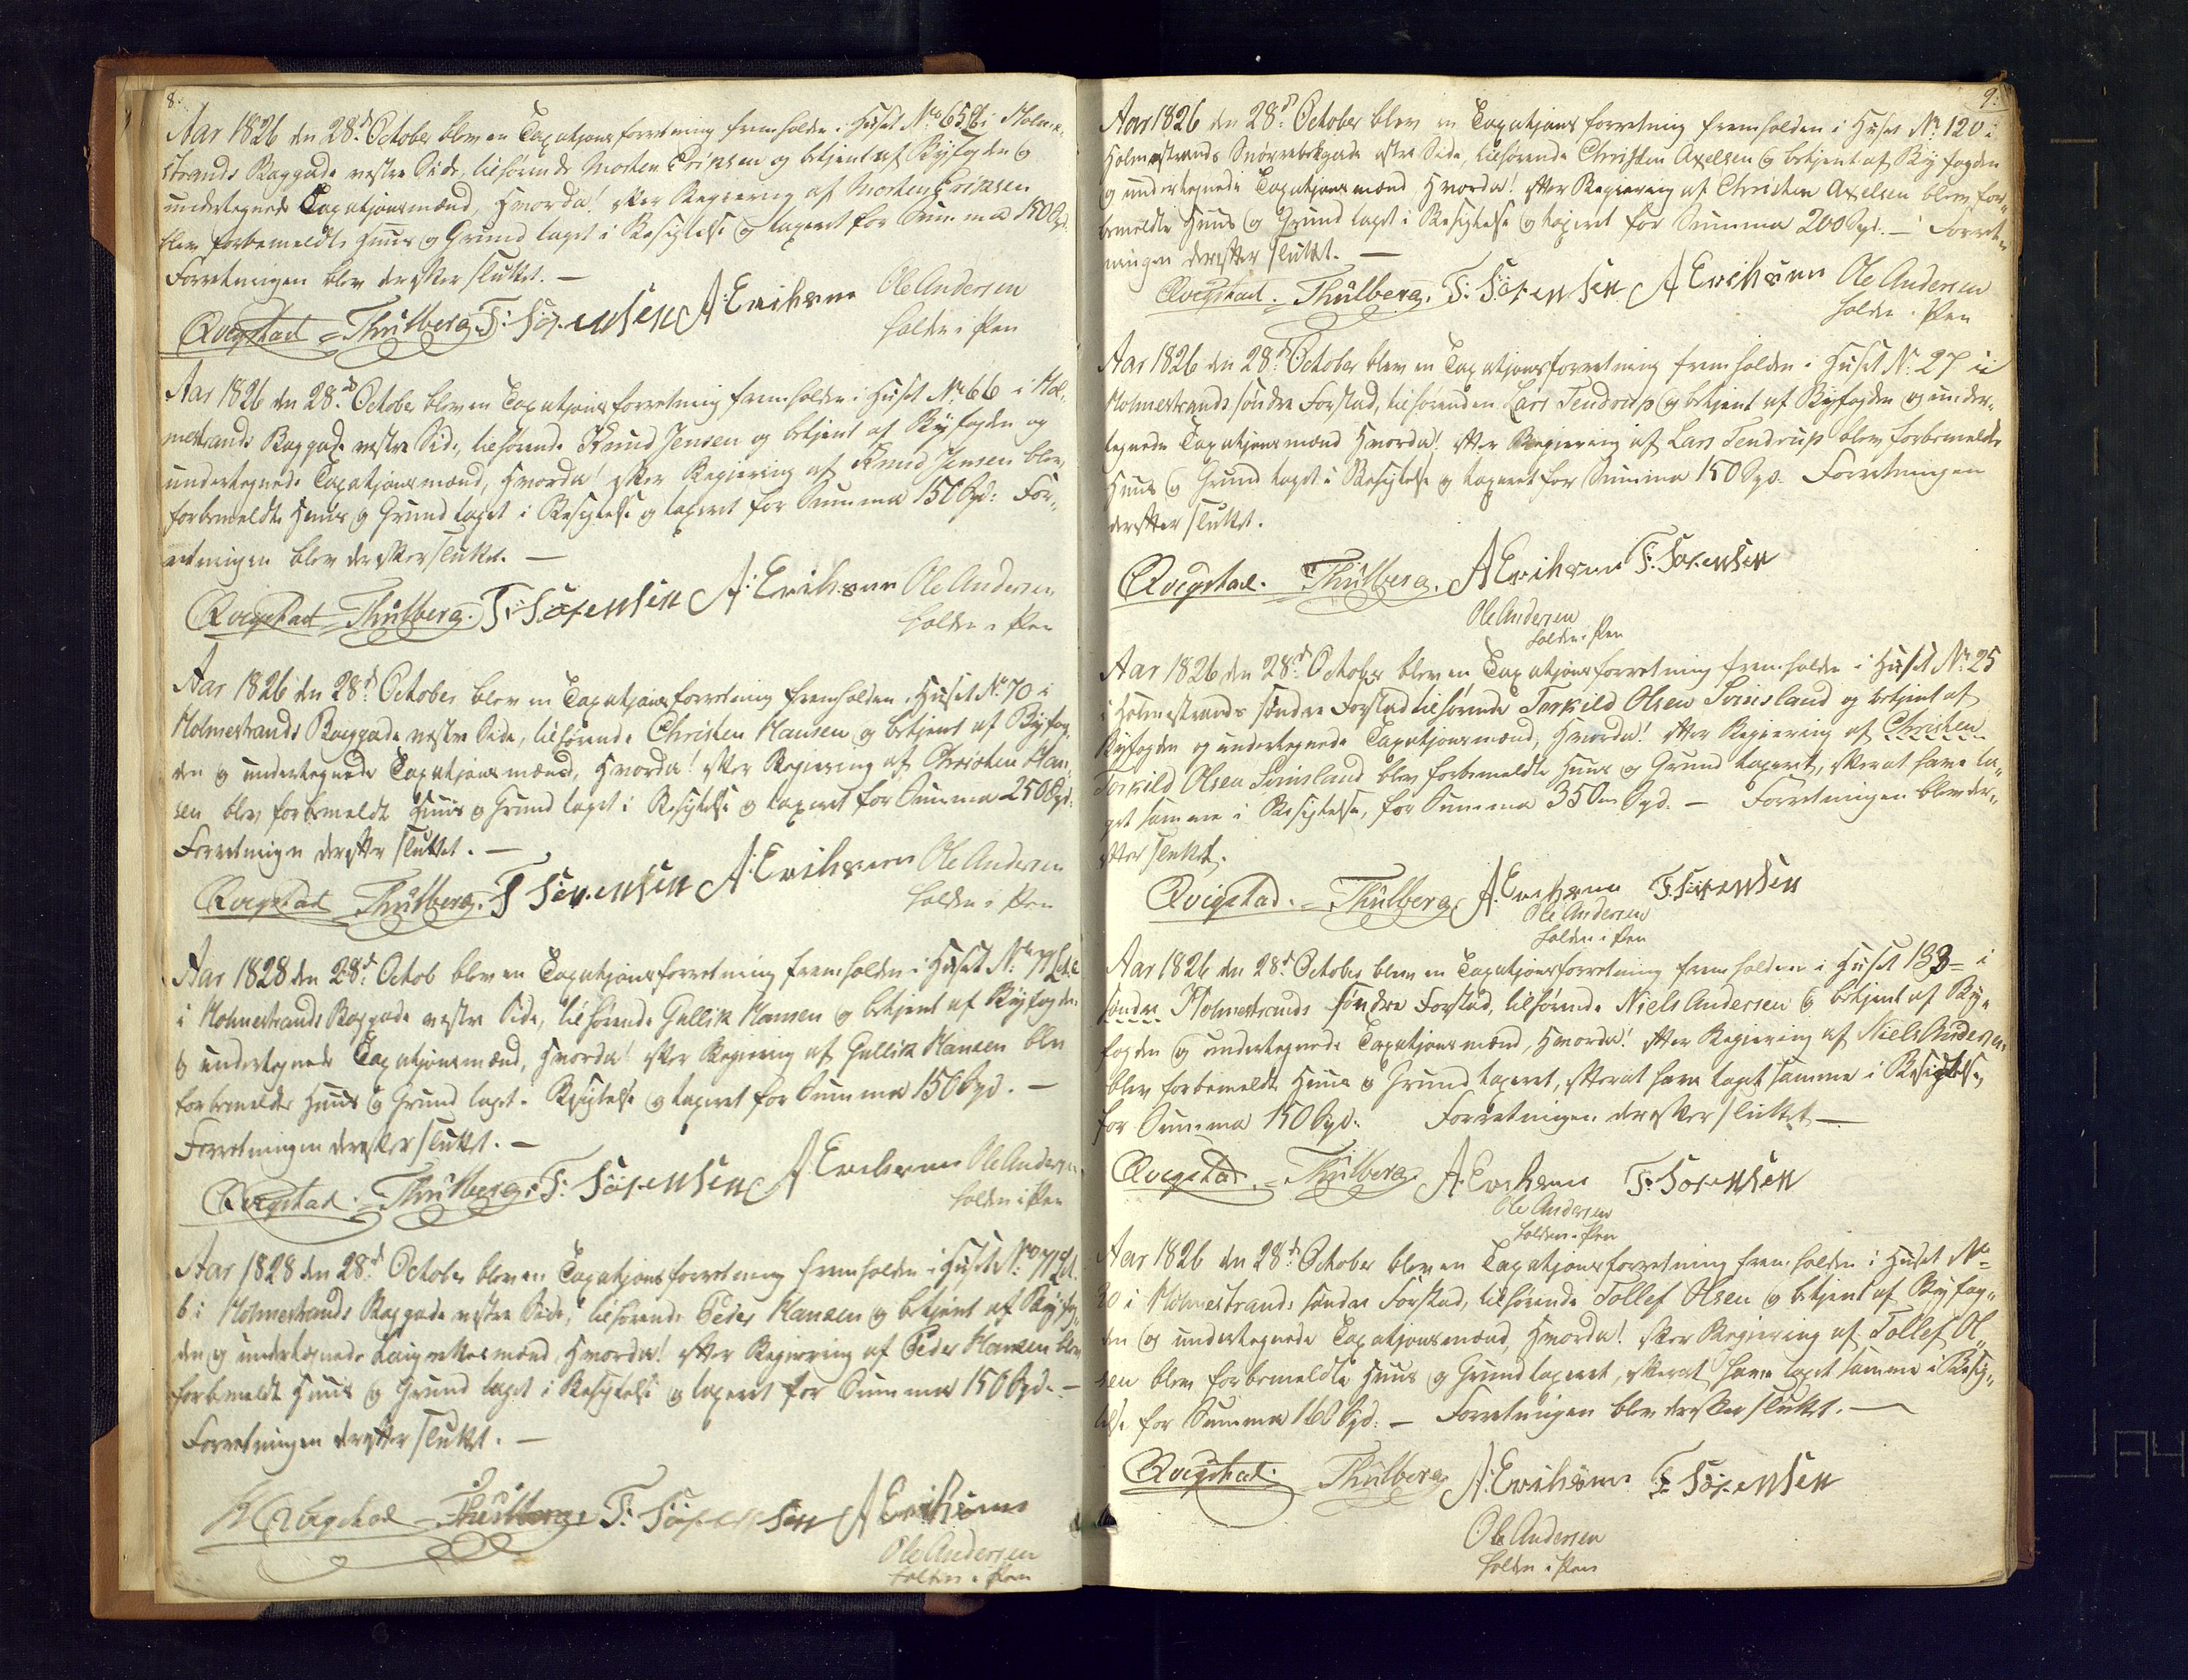 8.
Aar 1826 den 28d October blev en Taxationsforretning fremholden i Huset No 65 b i Holme-
strands Baggade vestre Side, tilhørende Morten Erichsen og betjent af Byfogden og
undertegnede Taxationsmænd, Hvorda! efter Reqviering af Morten Erichsen
blev forbemeldte Huus og Grund taget i Besigtelse og taxeret for Summa 150 Spd.
Forretningen blev derefter sluttet. —
Qvigstad Thulberg. F: Sørensen A: Erichsen Ole Andersen
holden i Pen
Aar 1826 den 28d October blev en Taxationsforretning fremholden i Huset No 66 i Hol-
mestrands Baggade vestre Side, tilhørende Knud Jensen og betjent af Byfogden og
undertegnede Taxationsmænd, Hvorda! efter Reqviering af Knud Jensen blev
forbemeldte Huus og Grund taget i Besigtelse og taxeret for Summa 150 Spd: For-
retningen blev derefter sluttet. —
Qvigstad Thulberg. F: Sørensen A: Erichsen Ole Andersen
holden i Pen
Aar 1826 den 28d October blev en Taxationsforretning fremholden i Huset No 70 i
Holmestrands Baggade vestre Side, tilhørende Christen Hansen og betjent af Byfog-
den og undertegnede Taxationsmænd, Hvorda! efter Reqviering af Christen Han-
sen blev forbemeldte Huus og Grund taget i Besigtelse og taxeret for Summa 250 Spd.
Forretningen derefter sluttet. —
Qvigstad Thulberg. F Sørensen A: Erichsen Ole Andersen
holden i Pen
Aar 1828 den 28d Octob blev en Taxationsforretning fremholden i Huset No 71
i Holmestrands Baggade vestre Side, tilhørende Gullik Hansen og betjent af Byfogden
og undertegnede Taxationsmænd, Hvorda! efter Reqviering af Gullik Hansen blev
forbemeldte Huus og Grund taget i Besigtelse og taxeret for Summa 150 Spd. —
Forretningen derefter sluttet. —
Qvigstad. Thulberg. F: Sørensen A Erichsen Ole Andersen
holden i Pen
Aar 1828 den 28d October blev en Taxationsforretning fremholden i Huset No 71
b i Holmestrands Baggade vestre Side, tilhørende Peder Hansen og betjent af Byfog-
den og undertegnede Laugrettesmænd, Hvorda! efter Reqviering af Peder Hansen blev
forbemeldte Huus og Grund taget i Besigtelse og taxeret for Summa 150 Spd. —
Forretningen derefter sluttet. —
Qvigstad Thulberg. F: Sørensen A Erichsen
Ole Andersen
holden i Pen
9.
Aar 1826 den 28d October blev en Taxationsforretning fremholden i Huset No 120 i
Holmestrands Snorrebekgade østre Side, tilhørende Christen Axelsen og betjent af Byfogden
og undertegnede Taxationsmænd, Hvorda! efter Reqviering af Christen Axelsen blev for-
bemeldte Huus og Grund taget i Besigtelse og taxeret for Summa 200 Spd. — Forret-
ningen derefter sluttet. —
Qvigstad. Thulberg. F: Sørensen A Erichsen Ole Andersen
holden i Pen
Aar 1826 den 28d October blev en Taxationsforretning fremholden i Huset No 27 i
Holmestrands søndre Forstad, tilhørenden Lars Tendrup og betjent af Byfogden og under-
tegnede Taxationsmænd Hvorda! efter Reqviering af Lars Tendrup blev forbemeldte
Huus og Grund taget i Besigtelse og taxeret for Summa 150 Spd. Forretningen
derefter sluttet.
Qvigstad. Thulberg. A Erichsen F: Sørensen
Ole Andersen
holden i Pen
Aar 1826 den 28d October blev en Taxationsforretning fremholden i Huset No 25
i Holmestrands søndre Forstad tilhørende Torkild Olsen Svinsland og betjent af
Byfogden og undertegnede Taxationsmænd, Hvorda! efter Reqviering af Christen
Torkild Olsen Svinsland blev forbemeldte Huus og Grund taxeret, efterat have ta-
get samme i Besigtelse, for Summa 350 Spd. — Forretningen blev der-
efter sluttet.
Qvigstad. Thulberg. A. Erichsen F: Sørensen
Ole Andersen
holden i Pen
Aar 1826 den 28d October blev en Taxationsforretning fremholden i Huset 133 i
søndre Holmestrands søndre Forstad, tilhørende Niels Andersen og betjent af By-
fogden og undertegnede Taxationsmænd, Hvorda! efter Reqviering af Niels Andersen
blev forbemeldte Huus og Grund taxeret, efterat have taget samme i Besigtelse,
for Summa 150 Spd: Forretningen derefter sluttet —
Qvigstad. Thulberg. A: Erichsen F: Sørensen
Ole Andersen
holden i Pen
Aar 1826 den 28d October blev en Taxationsforretning fremholden i Huset No
20 i Holmestrands søndre Forstad, tilhørende Tollef Olsen og betjent af Byfog-
den og undertegnede Taxationsmænd, Hvorda! efter Reqviering af Tollef Ol-
sen blev forbemeldte Huus og Grund taxeret, efterat have taget samme i Besig-
telse for Summa 160 Spd: — Forretningen blev derefter sluttet. —
Qvigstad. Thulberg A: Erichsen F: Sørensen
Ole Andersen
holden i Pen